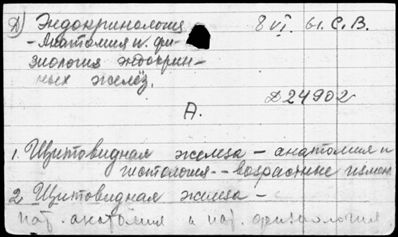 Д) Эндокринология 8 VI. 61. С.В.
- Анатомия и фи-
зиология эндокрин-
ных желёз.
А. Д24902
1. Щитовидная железа - анатомия и
гистология -- возрастные измен
2 Щитовидная железа -
пат. анатомия и пат. физиология